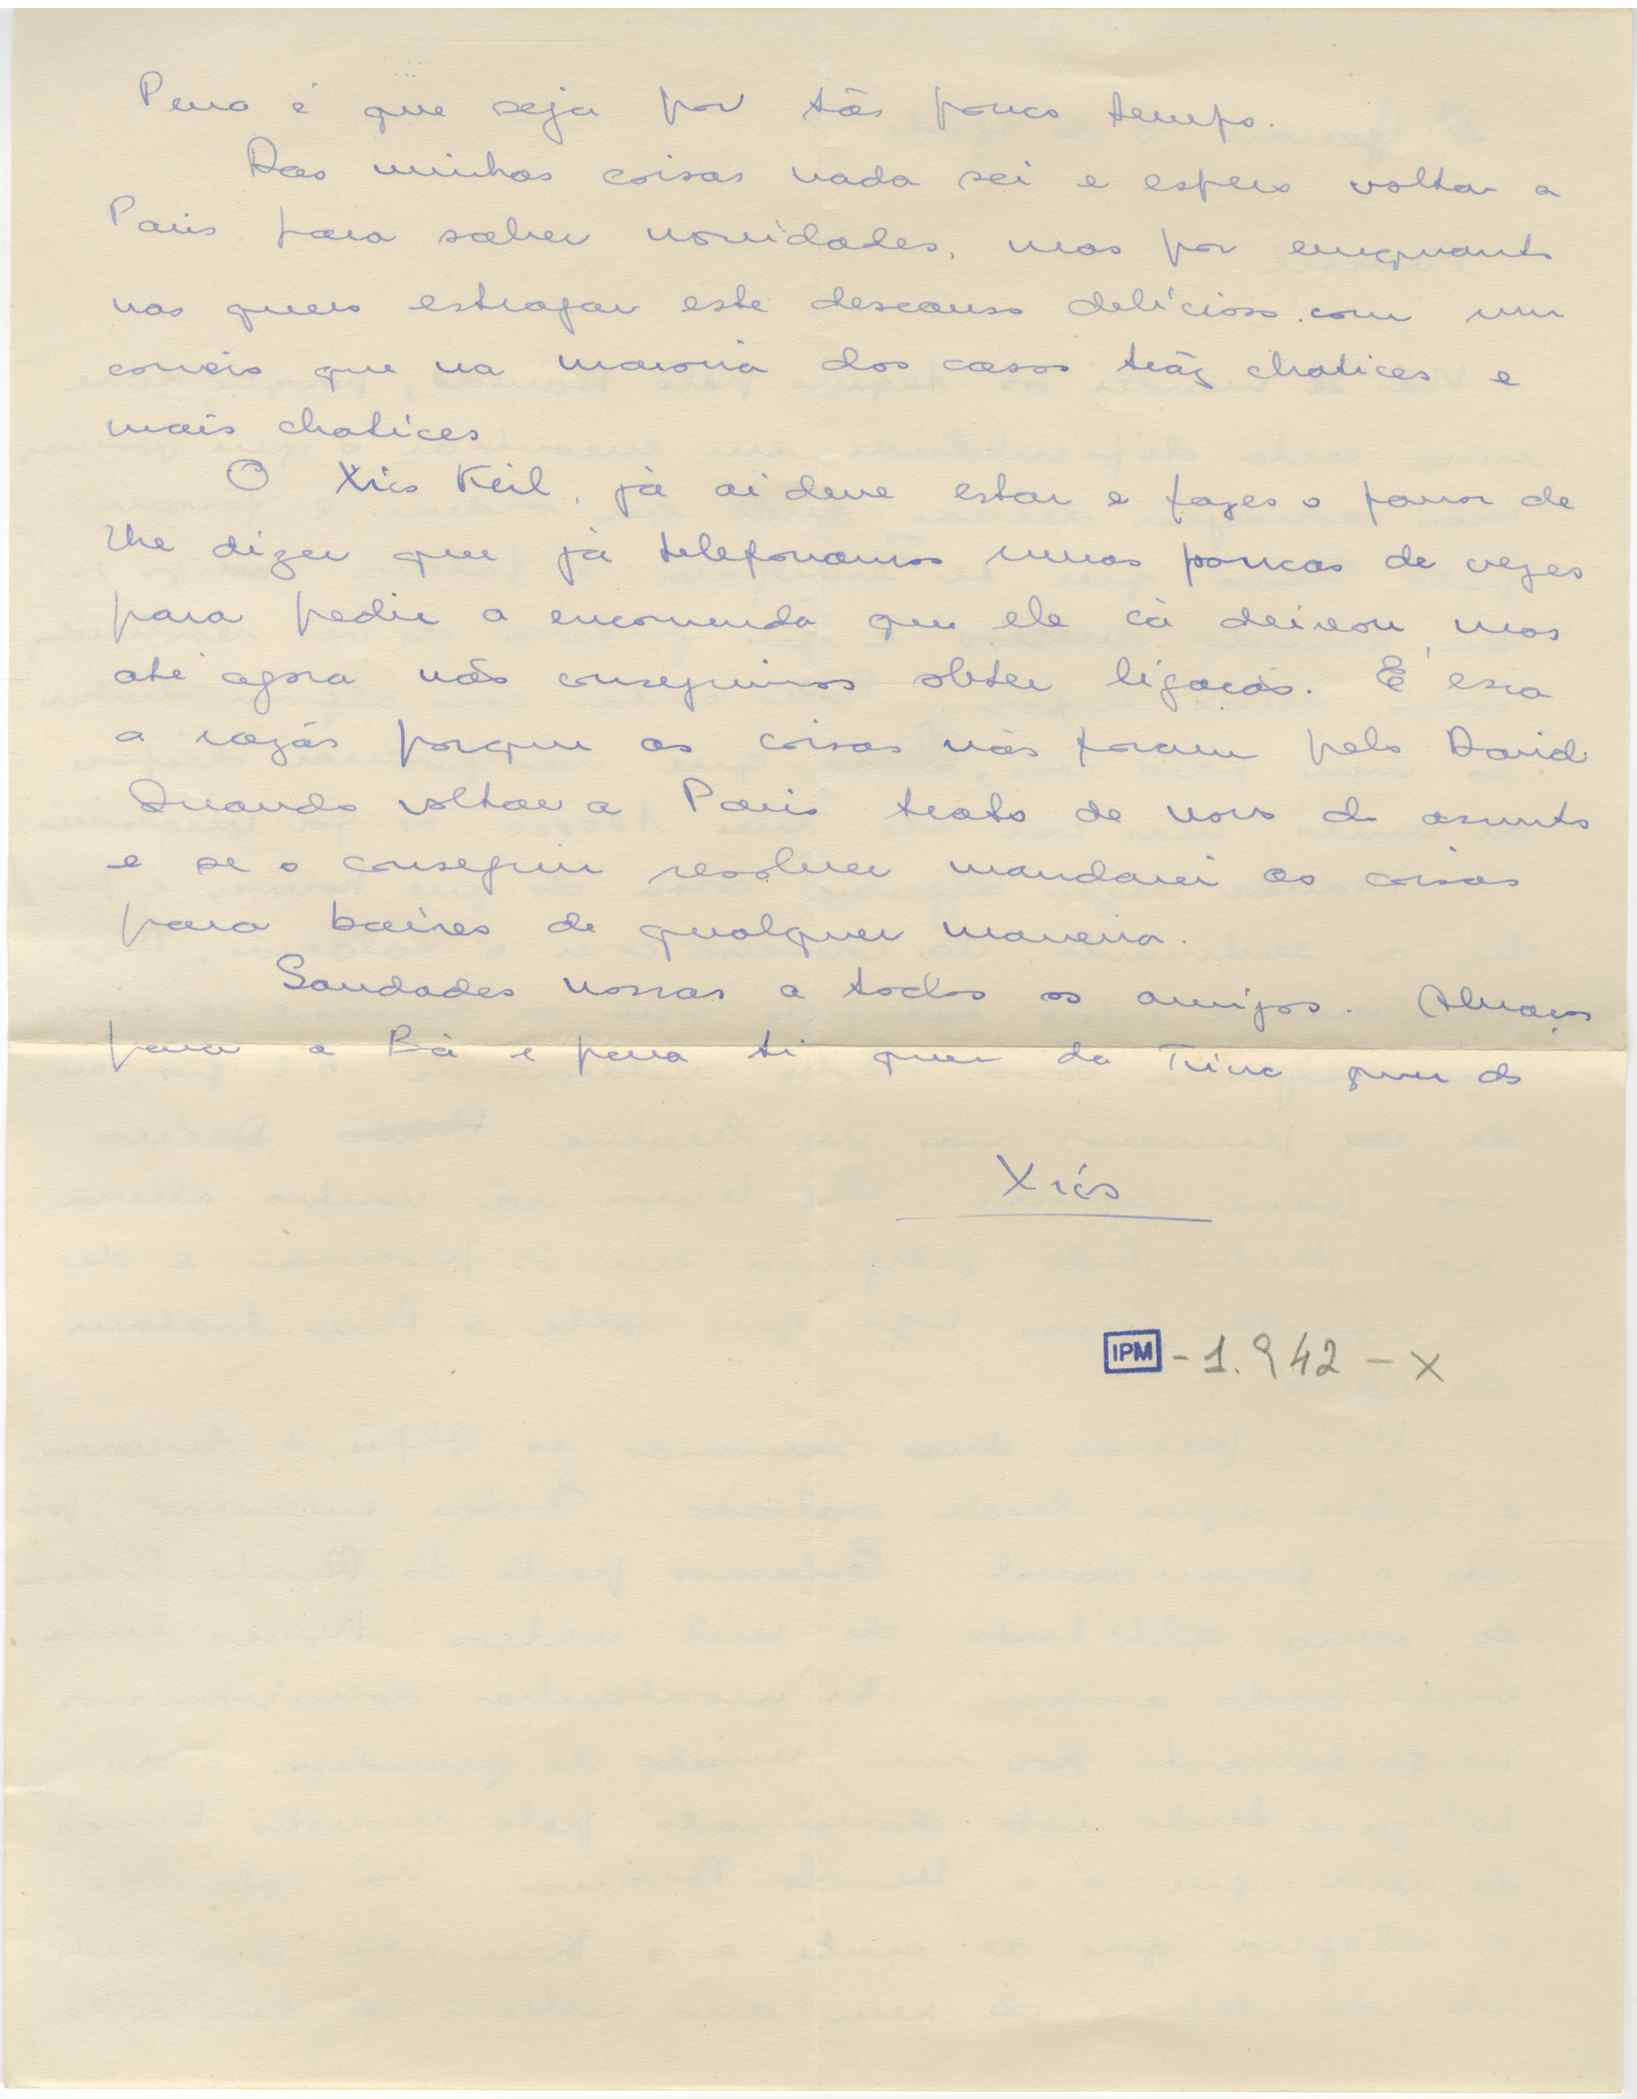 Pena é que seja por tão pouco tempo.
Das minhas coisas nada sei e espero voltar a
Paris para saber novidades, mas por emquanto
não quero estragar este descanso delícioso com um
correio que na maioria dos casos tráz chatices e
mais chatices
O Xico Keil, já ai deve estar e fazes o favor de
lhe dizer que já telefonamos umas poucas de vezes
para pedir a encomenda que ele cá deixou, mas
até agora não conseguimos obter ligação. É essa
a razão porque as coisas não foram pelo David
Quando voltar a Paris trato de novo do assunto
e se o conseguir resolver mandarei as coisas
para baixo de qualquer maneira.
Saudades nossas a todos os amigos. Abraços
para a Bá e para ti quer da Trina quer do
Xico
IPM - 1.942 - X